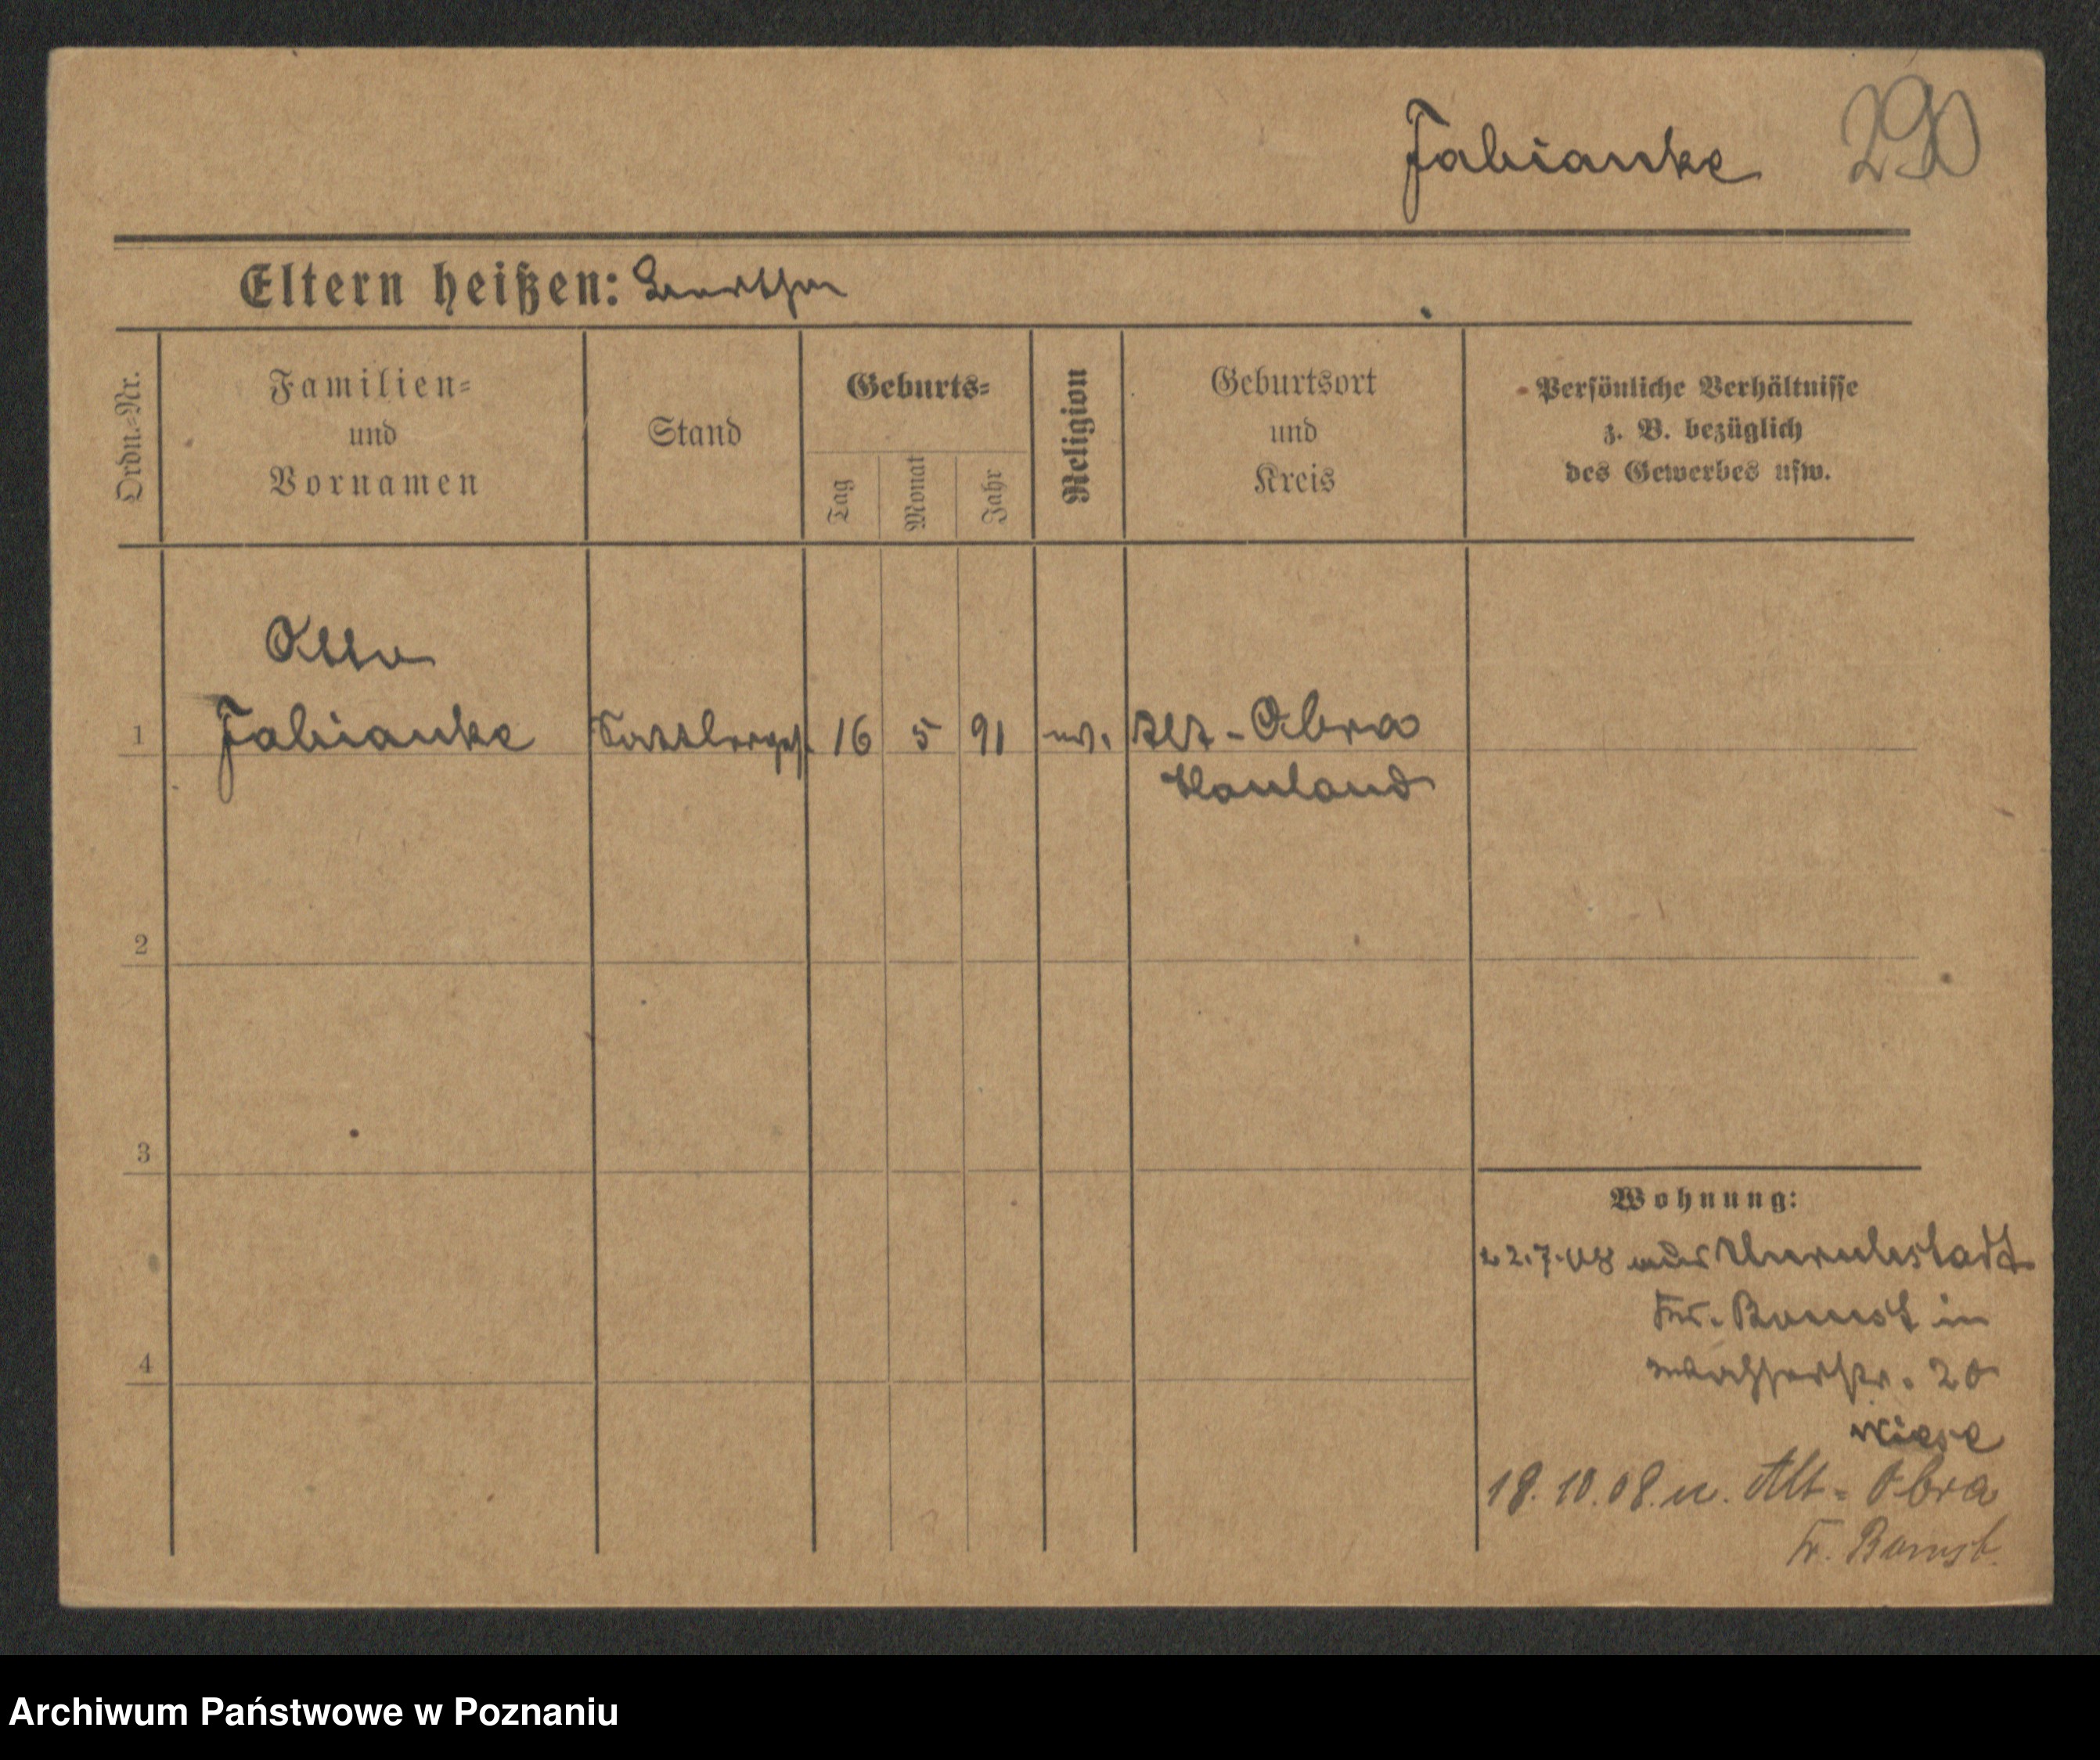 Fabianke 290
Eltern heißen:
Ordn.-Nr.
Familien-
und
Vornamen
Stand
Geburts-
Tag
Monat
Jahr
Religion
Geburtsort
und
Kreis
Persönliche Verhältnisse
z. B. bezüglich
des Gewerbes usw.
Otto
1 Fabianke 16 5 91 ev. Alt-Obra
Hauland
2
3
4
Wohnung:
22.7.08 aus Unruhstadt
Kr. Bomst in
20
Wiese
18.10.08. n. Alt-Obra
Kr. Bomst.
Archiwum Państwowe w Poznaniu